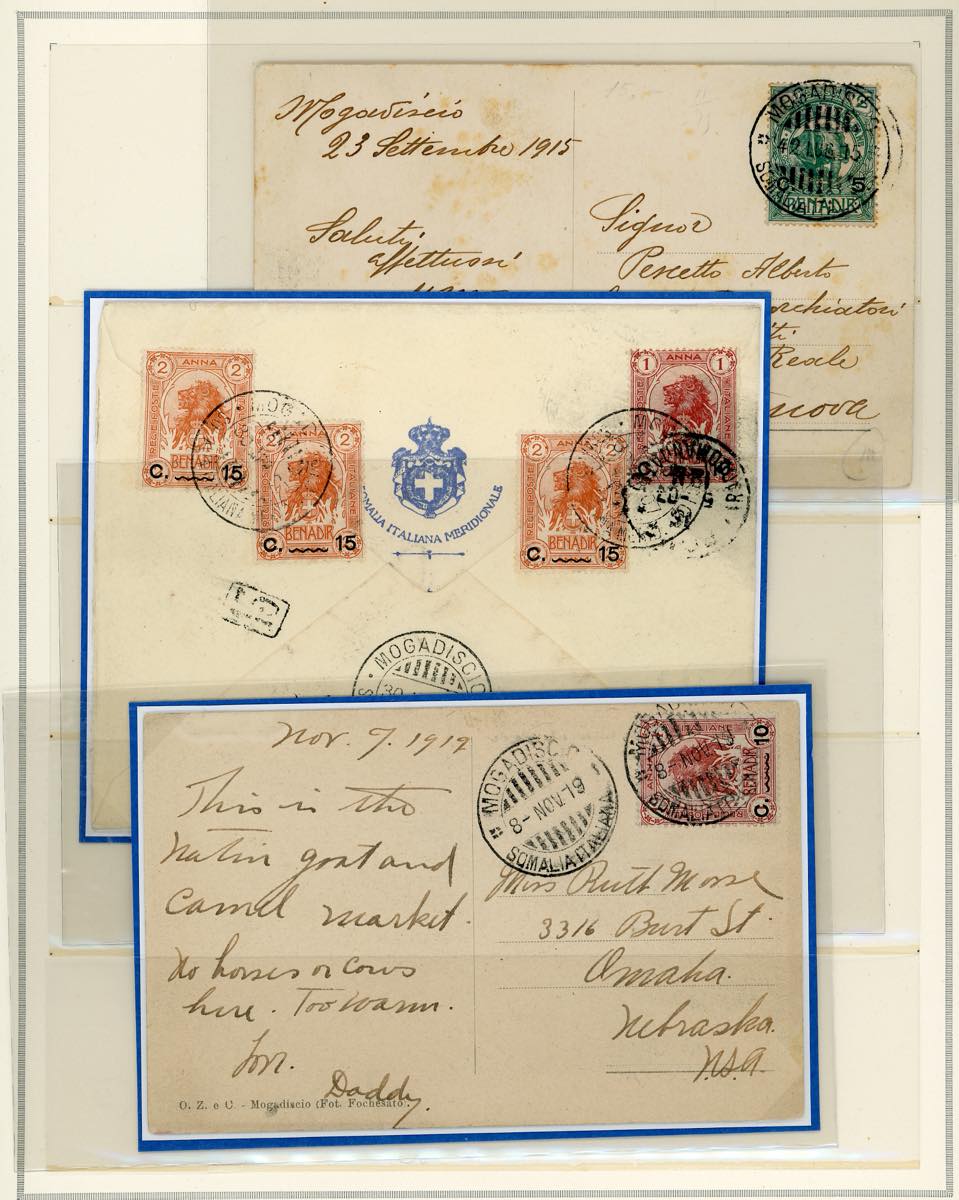 Mogadiscio
23 Settembre 1915
Saluti
affettuosi
Signor
Pescetto Alberto
Reale
MOGADISCIO
SOMALIA
C. 5
BENADIR
2 ANNA 2
BENADIR
C. 15
2 ANNA 2
BENADIR
C. 15
SOMALIA ITALIANA MERIDIONALE
2 ANNA 2
BENADIR
C. 15
1 ANNA 1
MOGADISCIO
30
Nov. 9/1919
This is the
native goat and
Camel market.
No horses or cows
here. Too warm.
Daddy.
O. Z. e C. - Mogadiscio (Fot. Fochesato).
MOGADISCIO
8-NOV.19
SOMALIA ITALIANA
8-NOV.15
BENADIR
C. 10
Miss Ruth Morse
3316 Burt St
Omaha.
Nebraska.
U.S.A.